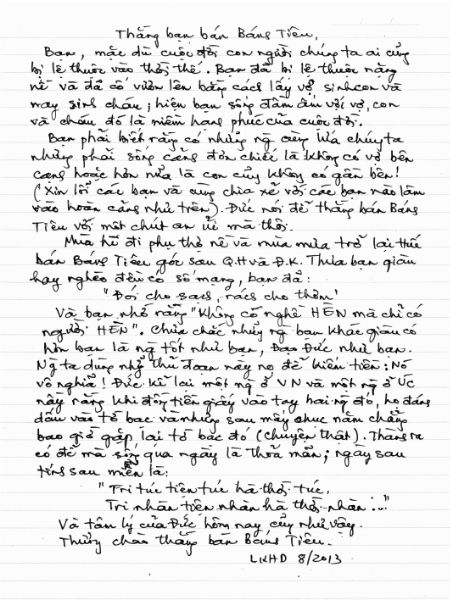 Thằng bạn bán Báng Tiêu,
Bạn, mặc dù cuộc đời con người chúng ta ai cũng
bị lệ thuộc vào thời thế. Bạn đã bị lệ thuộc nặng
nề và đã cố vươn lên bằng cách lấy vợ, sinh con và
may sinh cháu; hiện bạn sống đầm ấm với vợ, con
và cháu đó là niềm hạnh phúc của cuộc đời.
Bạn phải biết rằng có những ng cùng lứa chúng ta
nhưng phải sống cảnh đơn chiếc là không có vợ bên
cạnh hoặc hơn nữa là con cũng không có gần bên!
(Xin lỗi các bạn và cùng chia xẻ với các bạn nào lâm
vào hoàn cảnh như trên). Đức nói để thằng bán Báng
Tiêu với một chút an ủi mà thôi.
Mùa hè đi phụ thợ nề và mùa mưa trở lại thú
bán Báng Tiêu góc sau Q.H và Đ.K. Thưa bạn giàu
hay nghèo đều có số mạng, bạn đã:
"Đói cho sạch, rách cho thơm"
Và bạn nhớ rằng "Không có nghề HÈN mà chỉ có
người HÈN". Chưa chắc những ng bạn khác giàu có
hơn bạn là ng tốt như bạn, Đạo Đức như bạn.
Ng ta dùng những thủ đoạn này nọ để kiếm tiền: Nó
vô nghĩa! Đức kể lại một ng ở VN và một ng ở Úc
này rằng khi đồng tiền giấy vào tay hai ng đó, họ đánh
dấu vào tờ bạc và những sau mấy chục năm chẳng
bao giờ gặp lại tờ bạc đó (chuyện thật). Thành ra
có để mà sống qua ngày là thỏa mãn; ngày sau
tính sau miễn là:
"Tri túc tiện túc hà thời túc,
Tri nhàn tiện nhàn hà thời nhàn..."
Và tâm lý của Đức hôm nay cũng như vậy.
Thương chào thằng bán Báng Tiêu.
LKHD 8/2013